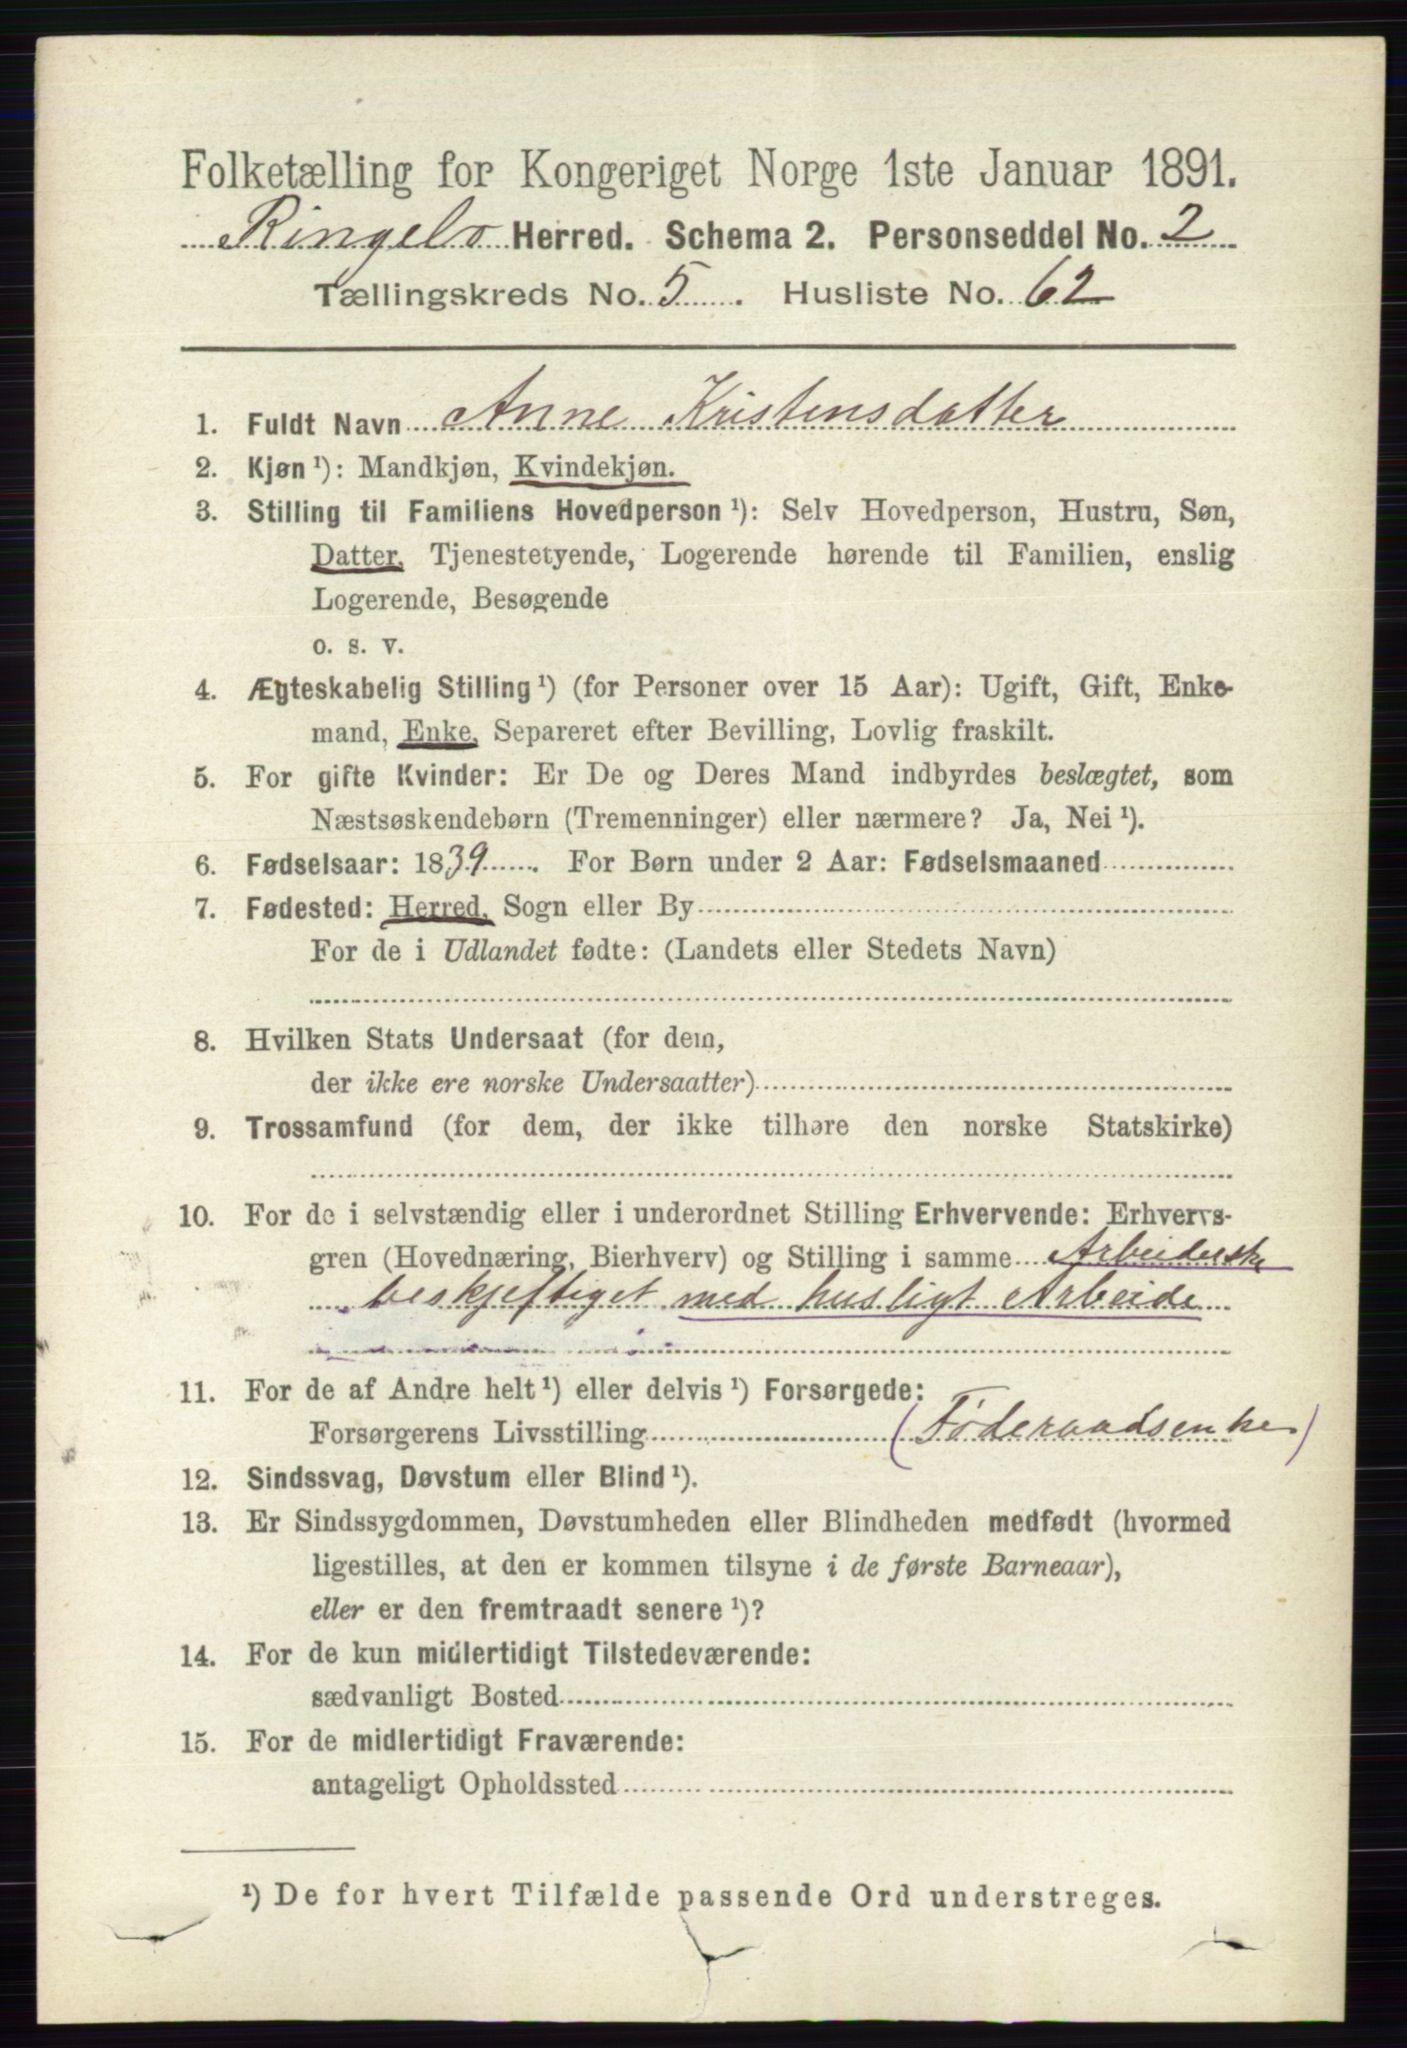 Folketælling for Kongeriget Norge 1ste Januar 1891.
Ringebo Herred. Schema 2. Personseddel No. 2
Tællingskreds No. 5. Husliste No. 62
1. Fuldt Navn Anne Kristensdatter
2. Kjøn ¹): Mandkjøn, Kvindekjøn.
3. Stilling til Familiens Hovedperson ¹): Selv Hovedperson, Hustru, Søn,
Datter, Tjenestetyende, Logerende hørende til Familien, enslig
Logerende, Besøgende
o. s. v.
4. Ægteskabelig Stilling ¹) (for Personer over 15 Aar): Ugift, Gift, Enke-
mand, Enke, Separeret efter Bevilling, Lovlig fraskilt.
5. For gifte Kvinder: Er De og Deres Mand indbyrdes beslægtet, som
Næstsøskendebørn (Tremenninger) eller nærmere? Ja, Nei ¹).
6. Fødselsaar: 1839. For Børn under 2 Aar: Fødselsmaaned
7. Fødested: Herred, Sogn eller By
For de i Udlandet fødte: (Landets eller Stedets Navn)
8. Hvilken Stats Undersaat (for dem,
der ikke ere norske Undersaatter)
9. Trossamfund (for dem, der ikke tilhøre den norske Statskirke)
10. For de i selvstændig eller i underordnet Stilling Erhvervende: Erhvervs-
gren (Hovednæring, Bierhverv) og Stilling i samme Arbeiderske
beskjeftiget med husligt Arbeide
11. For de af Andre helt ¹) eller delvis ¹) Forsørgede:
Forsørgerens Livsstilling (Føderaadsenke)
12. Sindssvag, Døvstum eller Blind ¹).
13. Er Sindssygdommen, Døvstumheden eller Blindheden medfødt (hvormed
ligestilles, at den er kommen tilsyne i de første Barneaar),
eller er den fremtraadt senere ¹)?
14. For de kun midlertidigt Tilstedeværende:
sædvanligt Bosted
15. For de midlertidigt Fraværende:
antageligt Opholdssted
¹) De for hvert Tilfælde passende Ord understreges.